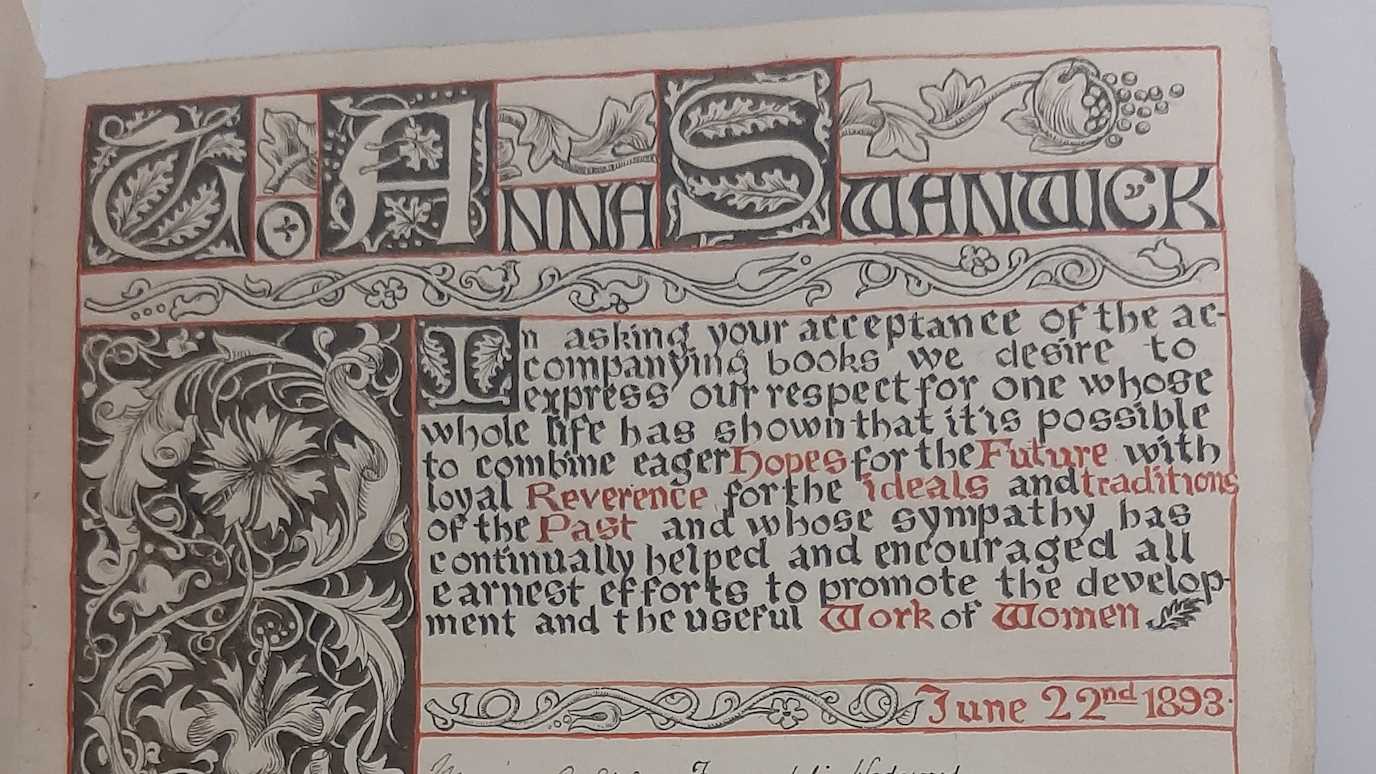 To Anna Swanwick
In asking your acceptance of the ac-
companying books we desire to
express our respect for one whose
whole life has shown that it is possible
to combine eager Hopes for the Future with
loyal Reverence for the ideals and traditions
of the Past and whose sympathy has
continually helped and encouraged all
earnest efforts to promote the develop-
ment and the useful Work of Women
June 22nd 1893.